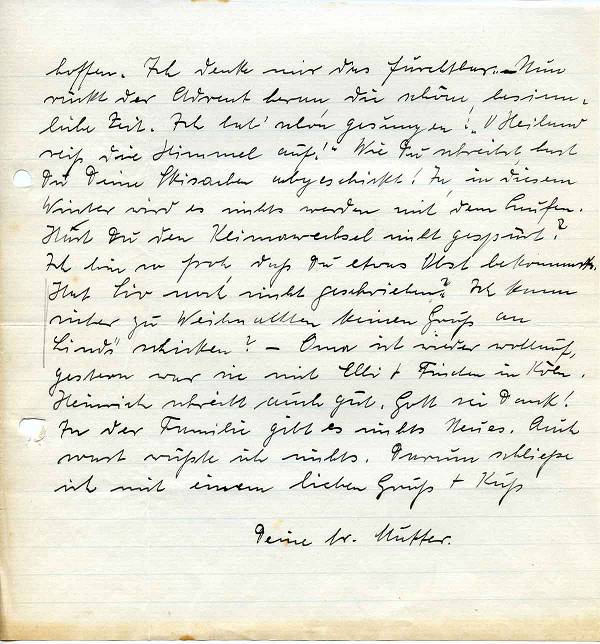 hoffen. Ich denke mir das furchtbar. – Nun
rückt der Advent heran die schöne, besinn-
liche Zeit. Ich hab' schon gesungen! „O Heiland
reiß die Himmel auf!" Wie Du schreibst, hast
Du Deine Skisachen abgeschickt! Ja, in diesem
Winter wird es nichts werden mit dem Laufen.
Hast Du den Klimawechsel nicht gespürt?
Ich bin so froh, daß Du etwas Obst bekommst.
Hat noch nicht geschrieben? Ich kann
zu Weihnachten keinen Gruß an
schicken? – Oma ist wieder wohlauf,
gestern war sie mit Elli + in Köln.
Heinrich schreibt auch gut. Gott sei Dank!
In der Familie gibt es nichts Neues. Auch
sonst wüßte ich nichts. Darum schließe
ich mit einem lieben Gruß + Kuß
Deine tr. Mutter.